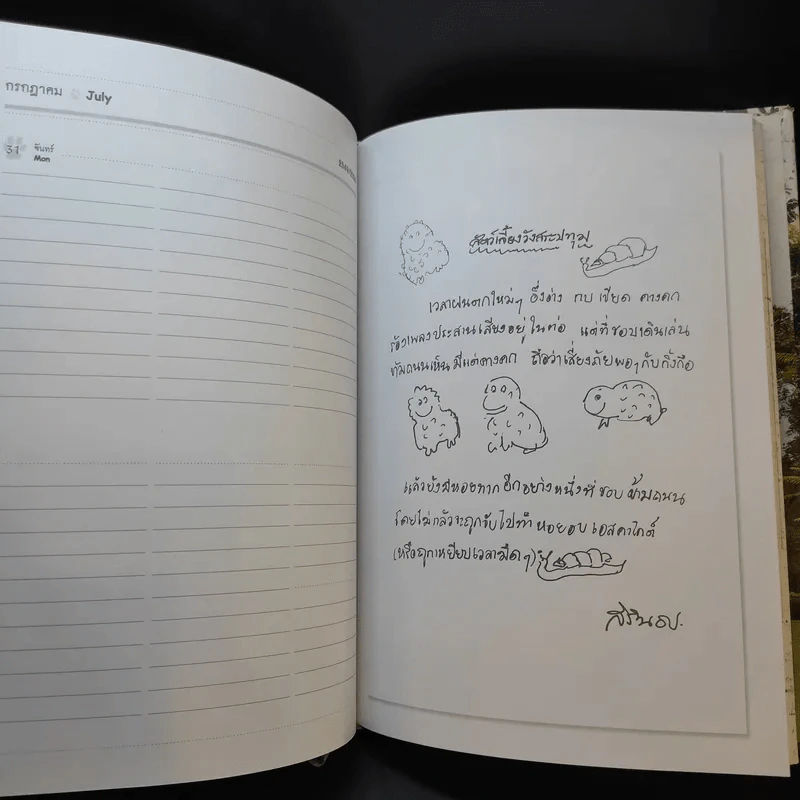 กรกฎาคม July
31 จันทร์
Mon
สัตว์เลี้ยงวังสระปทุม
เวลาฝนตกใหม่ๆ อึ่งอ่าง กบ เขียด คางคก
ร้องเพลงประสานเสียงอยู่ในท่อ แต่ที่ชอบเดินเล่น
ข้ามถนนเห็นมีแต่คางคก ถือว่าเสี่ยงภัยพอๆกับกิ้งกือ
แล้วยังมีหอยทากอีกอย่างหนึ่งที่ชอบข้ามถนน
โดยไม่กลัวจะถูกจับไปทำหอยอบเอสคาโกต์
(หรือถูกเหยียบเวลามืดๆ)
สิรินธร.